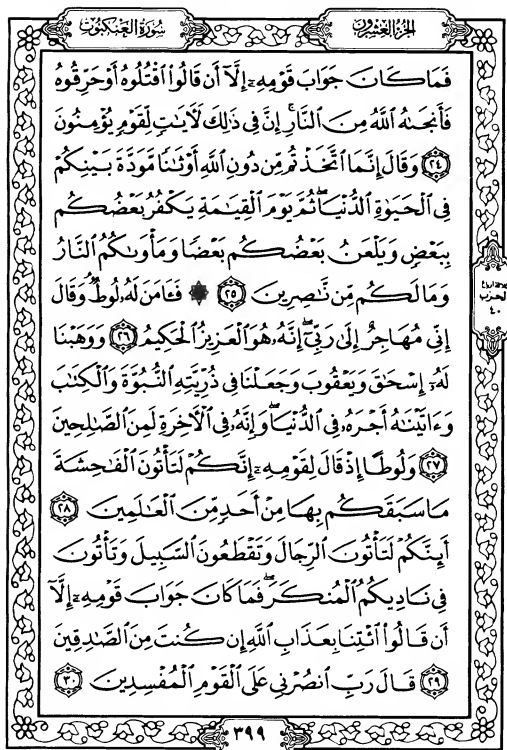 الجزء العشرون
سورة العنكبوت
فَمَا كَانَ جَوَابَ قَوْمِهِۦٓ إِلَّآ أَن قَالُوا۟ ٱقْتُلُوهُ أَوْ حَرِّقُوهُ
فَأَنجَىٰهُ ٱللَّهُ مِنَ ٱلنَّارِ ۚ إِنَّ فِى ذَٰلِكَ لَءَايَـٰتٍ لِّقَوْمٍ يُؤْمِنُونَ
٢٤ وَقَالَ إِنَّمَا ٱتَّخَذْتُم مِّن دُونِ ٱللَّهِ أَوْثَـٰنًا مَّوَدَّةَ بَيْنِكُمْ
فِى ٱلْحَيَوٰةِ ٱلدُّنْيَا ۖ ثُمَّ يَوْمَ ٱلْقِيَـٰمَةِ يَكْفُرُ بَعْضُكُم
بِبَعْضٍ وَيَلْعَنُ بَعْضُكُم بَعْضًا وَمَأْوَىٰكُمُ ٱلنَّارُ
وَمَا لَكُم مِّن نَّـٰصِرِينَ ٢٥ ۞ فَـَٔامَنَ لَهُۥ لُوطٌ ۘ وَقَالَ
إِنِّى مُهَاجِرٌ إِلَىٰ رَبِّىٓ ۖ إِنَّهُۥ هُوَ ٱلْعَزِيزُ ٱلْحَكِيمُ ٢٦ وَوَهَبْنَا
لَهُۥٓ إِسْحَـٰقَ وَيَعْقُوبَ وَجَعَلْنَا فِى ذُرِّيَّتِهِ ٱلنُّبُوَّةَ وَٱلْكِتَـٰبَ
وَءَاتَيْنَـٰهُ أَجْرَهُۥ فِى ٱلدُّنْيَا ۖ وَإِنَّهُۥ فِى ٱلْـَٔاخِرَةِ لَمِنَ ٱلصَّـٰلِحِينَ
٢٧ وَلُوطًا إِذْ قَالَ لِقَوْمِهِۦٓ إِنَّكُمْ لَتَأْتُونَ ٱلْفَـٰحِشَةَ
مَا سَبَقَكُم بِهَا مِنْ أَحَدٍ مِّنَ ٱلْعَـٰلَمِينَ ٢٨
أَئِنَّكُمْ لَتَأْتُونَ ٱلرِّجَالَ وَتَقْطَعُونَ ٱلسَّبِيلَ وَتَأْتُونَ
فِى نَادِيكُمُ ٱلْمُنكَرَ ۖ فَمَا كَانَ جَوَابَ قَوْمِهِۦٓ إِلَّآ
أَن قَالُوا۟ ٱئْتِنَا بِعَذَابِ ٱللَّهِ إِن كُنتَ مِنَ ٱلصَّـٰدِقِينَ
٢٩ قَالَ رَبِّ ٱنصُرْنِى عَلَى ٱلْقَوْمِ ٱلْمُفْسِدِينَ ٣٠
الحزب
٤٠
٣٩٩